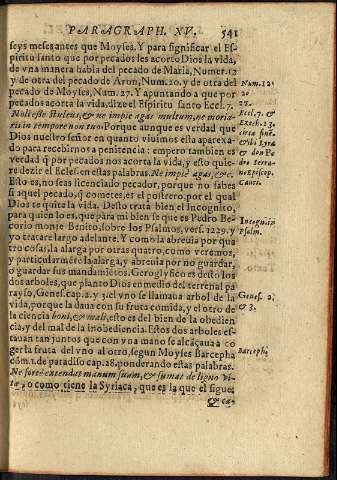 PARAGRAPH. XV. 541
seys meses antes que Moyses. Y para significar el Es-
piritu santo que por pecados les acorto Dios la vida,
de vna manera habla del pecado de Maria, Numer. 12
y de otra del pecado de Aron, Num. 20. y de otra del
pecado de Moyses, Num. 27. Y apuntando a que por
pecados acorta la vida. dize el Espiritu santo Eccl. 7.
Noli esse stultus, & ne impie agas multum, ne moria-
ris in tempore non tuo. Porque aunque es verdad que
Dios nuestro señor en quanto viuimos esta apareja-
do para recebirnos a penitencia: empero tambien es
verdad q̃ por pecados nos acorta la vida, y esto quie-
re dezir el Ecles. en estas palabras. Ne impie agas, &c.
Esto es, no seas licenciado pecador, porque no sabes
si aquel pecado, q̃ cometes, es el postrero, por el qual
Dios te quite la vida. Desto trató bien el Incognito,
para quien lo es, que para mi bien se que es Pedro Be-
rorio monje Benito, sobre los Psalmos, vers. 1229. y
yo tratare largo adelante. Y como la abreuia por qua
tro cosas, la alarga por otras quatro, como veremos,
y particularmẽte la alarga, y abreuia por no guardar,
o guardar sus mandamiẽtos. Geroglyfico es desto los
dos arboles, que planto Dios en medio del terrenal pa
rayso, Genes. cap. 2. y 3. el vno se llamaua arbol de la
vida, porque la daua con su fruta comida, y el otro de
la ciencia boni, & mali, esto es del bien de la obedien
cia, y del mal de la inobediencia. Estos dos arboles es-
tauan tan juntos que con vna mano se alcãçaua a co
ger la fruta del vno al otro, segun Moyses Barcepha
cõm. 1. de paradiso cap. 28. ponderando estas palabras.
Ne forte extendas manum suam, & sumat de ligno vi-
tæ, o como tiene la Syriaca, que es la que el sigue:
& ca-
Num. 12.
20
27.
Eccl. 7. &
Exech. 13.
circa finẽ.
& ibi Lyra
& don Pe
dro Serra-
no Episcop.
Incognitꝰ
Psalm.
Genes. 2.
& 3.
Barcepha